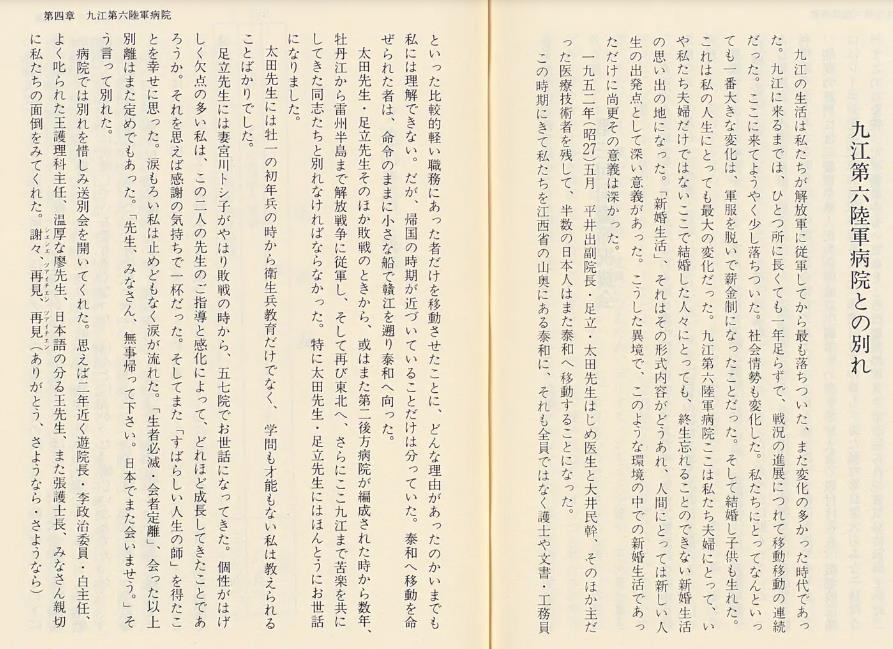 九江第六陸軍病院との別れ
九江の生活は私たちが解放軍に従軍してから最も落ちついた、また変化の多かった時代であっ
た。九江に来るまでは、ひとつ所に長くても一年足らずで、戦況の進展につれて移動移動の連続
だった。ここに来てようやく少し落ちついた。社会情勢も変化した。私たちにとってなんといっ
ても一番大きな変化は、軍服を脱いで薪金制になったことだった。そして結婚し子供も生れた。
これは私の人生にとっても最大の変化だった。九江第六陸軍病院ここは私たち夫婦にとって、い
や私たち夫婦だけではないここで結婚した人々にとっても、終生忘れることのできない新婚生活
の思い出の地になった。「新婚生活」、それはその形式内容がどうあれ、人間にとっては新しい人
生の出発点として深い意義があった。こうした異境で、このような環境の中での新婚生活であっ
ただけに尚更その意義は深かった。
一九五二年(昭27)五月 平井出副院長・足立・太田先生はじめ医生と大井民幹、そのほか主だ
った医療技術者を残して、半数の日本人はまた泰和へ移動することになった。
この時期にきて私たちを江西省の山奥にある泰和に、それも全員ではなく護士や文書・工務員
第四章 九江第六陸軍病院
といった比較的軽い職務にあった者だけを移動させたことに、どんな理由があったのかいまでも
私には理解できない。だが、帰国の時期が近づいていることだけは分っていた。泰和へ移動を命
ぜられた者は、命令のままに小さな船で贛江を遡り泰和へ向った。
太田先生・足立先生そのほか敗戦のときから、或はまた第二後方病院が編成された時から数年、
牡丹江から雷州半島まで解放戦争に従軍し、そして再び東北へ、さらにここ九江まで苦楽を共に
してきた同志たちと別れなければならなかった。特に太田先生・足立先生にはほんとうにお世話
になりました。
太田先生には牡一の初年兵の時から衛生兵教育だけでなく、学問も才能もない私は教えられる
ことばかりでした。
足立先生には妻宮川トシ子がやはり敗戦の時から、五七院でお世話になってきた。個性がはげ
しく欠点の多い私は、この二人の先生のご指導と感化によって、どれほど成長してきたことであ
ろうか。それを思えば感謝の気持ちで一杯だった。そしてまた「すばらしい人生の師」を得たこ
とを幸せに思った。涙もろい私は止めどもなく涙が流れた。「生者必滅・会者定離」、会った以上
別離はまた定めでもあった。「先生、みなさん、無事帰って下さい。日本でまた会いませう。」そ
う言って別れた。
病院では別れを惜しみ送別会を開いてくれた。思えば二年近く遊院長・李政治委員・白主任、
よく叱られた王護理科主任、温厚な廖先生、日本語の分る王先生、また張護士長、みなさん親切
に私たちの面倒をみてくれた。謝々、再見、再見(ありがとう、さようなら・さようなら)
シェシェ ツアイチェン ツアイチェン